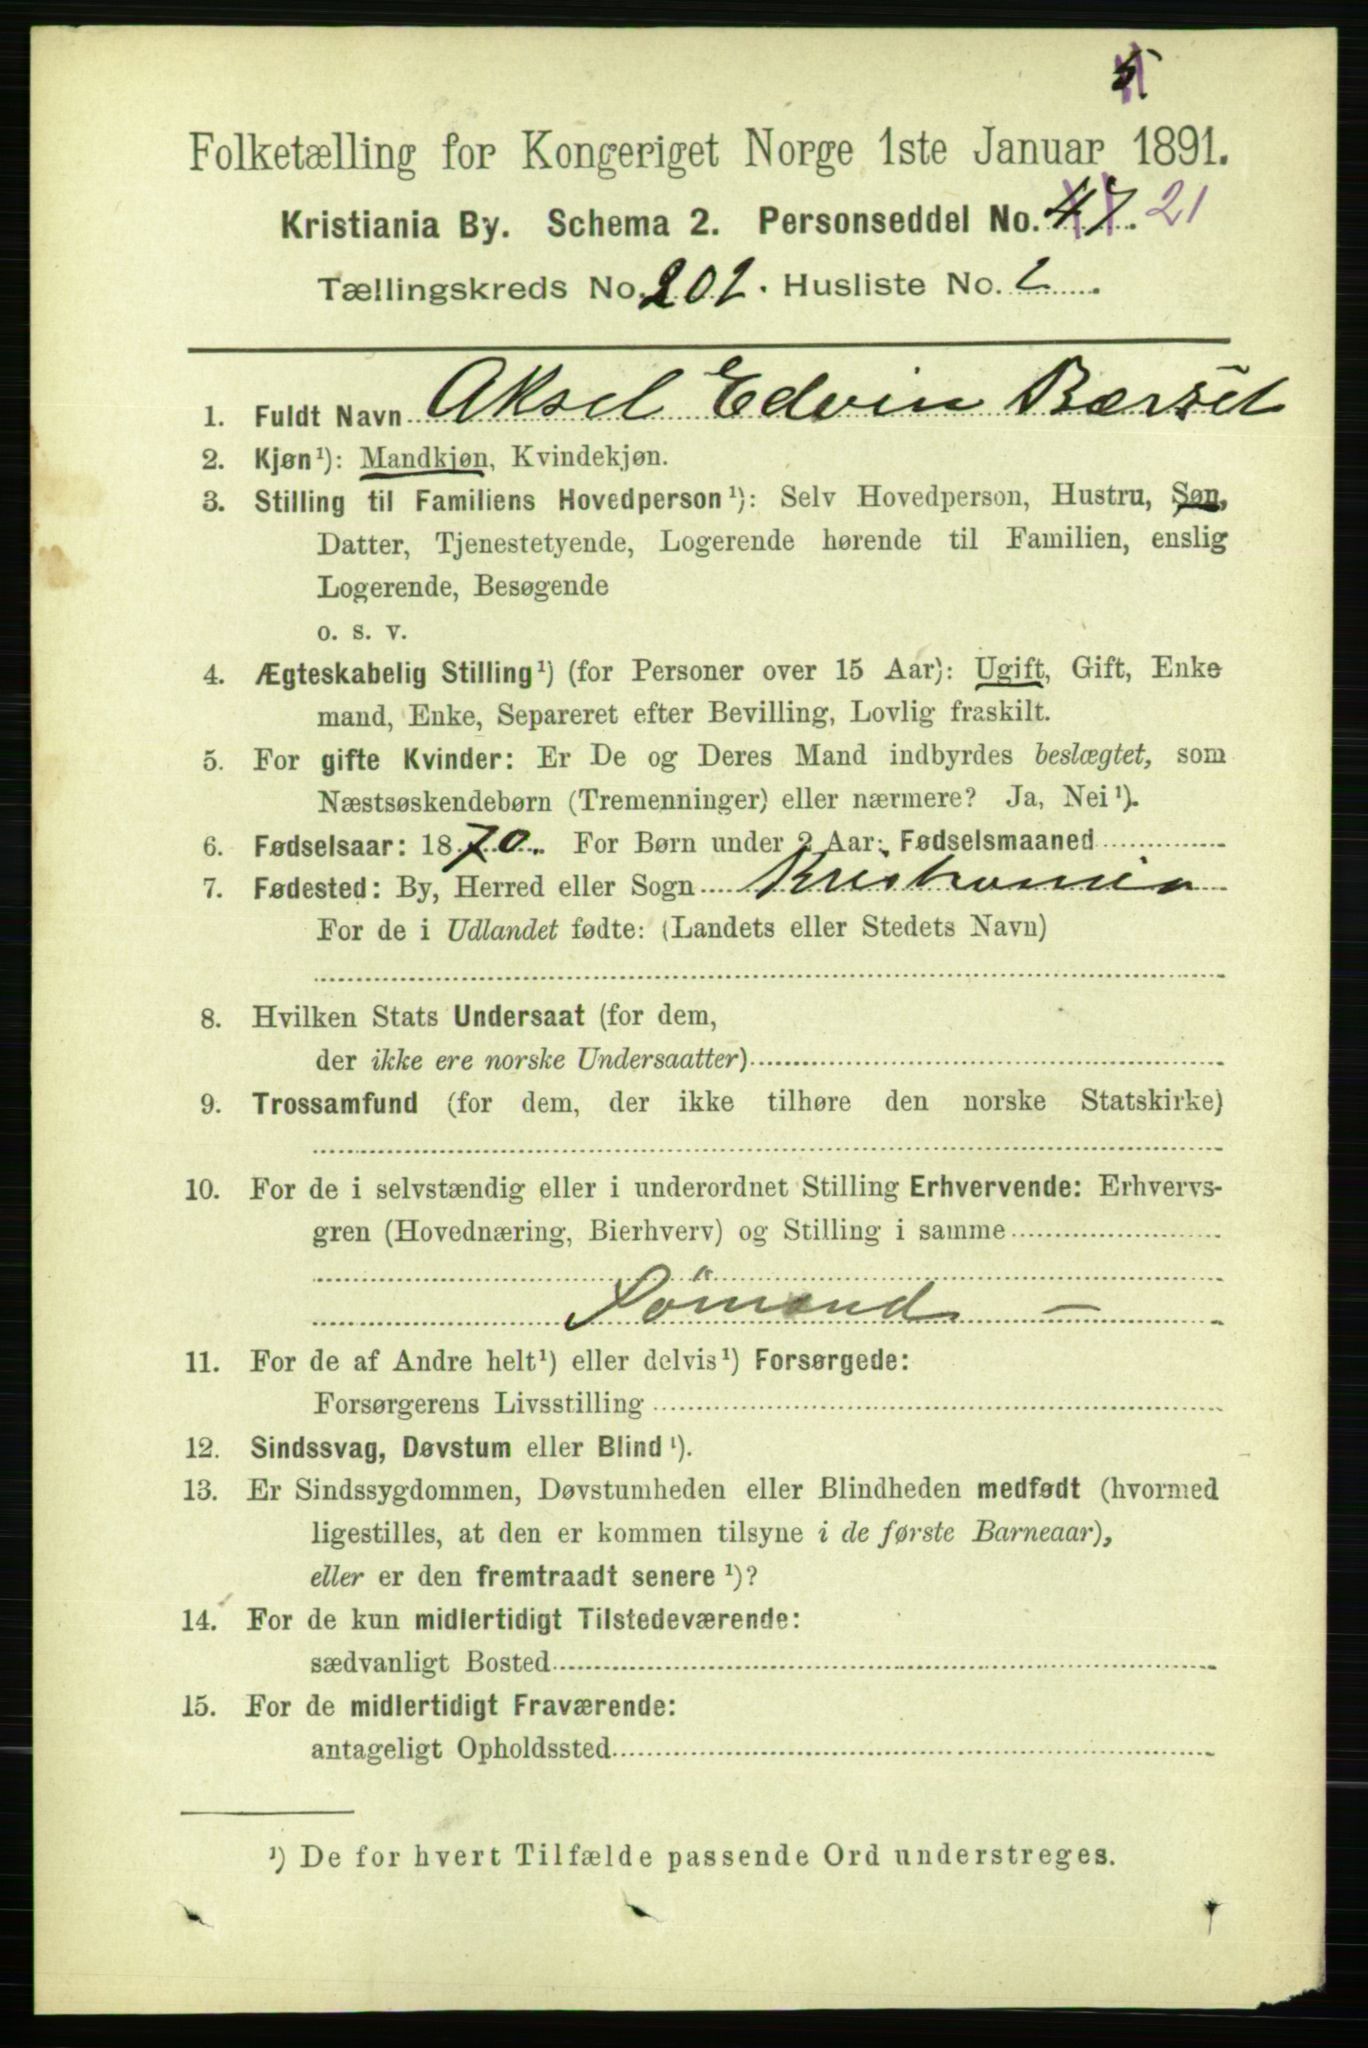 5
Folketælling for Kongeriget Norge 1ste Januar 1891.
Kristiania By. Schema 2. Personseddel No. 47. 21
Tællingskreds No. 202. Husliste No. 2
1. Fuldt Navn Aksel Edvin Bærset
2. Kjøn¹): Mandkjøn, Kvindekjøn.
3. Stilling til Familiens Hovedperson¹): Selv Hovedperson, Hustru, Søn,
Datter, Tjenestetyende, Logerende hørende til Familien, enslig
Logerende, Besøgende
o. s. v.
4. Ægteskabelig Stilling¹) (for Personer over 15 Aar): Ugift, Gift, Enke
mand, Enke, Separeret efter Bevilling, Lovlig fraskilt.
5. For gifte Kvinder: Er De og Deres Mand indbyrdes beslægtet, som
Næstsøskendebørn (Tremenninger) eller nærmere? Ja, Nei¹).
6. Fødselsaar: 1870. For Børn under 2 Aar: Fødselsmaaned
7. Fødested: By, Herred eller Sogn Kristiania
For de i Udlandet fødte: (Landets eller Stedets Navn)
8. Hvilken Stats Undersaat (for dem,
der ikke ere norske Undersaatter)
9. Trossamfund (for dem, der ikke tilhøre den norske Statskirke)
10. For de i selvstændig eller i underordnet Stilling Erhvervende: Erhvervs-
gren (Hovednæring, Bierhverv) og Stilling i samme
Sömand —
11. For de af Andre helt¹) eller delvis¹) Forsørgede:
Forsørgerens Livsstilling
12. Sindssvag, Døvstum eller Blind¹).
13. Er Sindssygdommen, Døvstumheden eller Blindheden medfødt (hvormed
ligestilles, at den er kommen tilsyne i de første Barneaar),
eller er den fremtraadt senere¹)?
14. For de kun midlertidigt Tilstedeværende:
sædvanligt Bosted
15. For de midlertidigt Fraværende:
antageligt Opholdssted
¹) De for hvert Tilfælde passende Ord understreges.